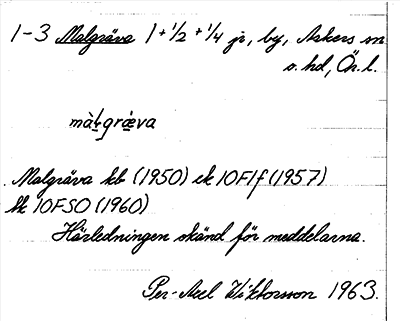 1-3 Malgräva 1 + 1/2 + 1/4 jr, by, Askers sn
o. hd, Ör. l.
màḷgræva
Malgräva kb (1950) ek 10F1f (1957)
tk 10FSO (1960)
Härledningen okänd för meddelarna.
Per-Axel Wiktorsson 1963.